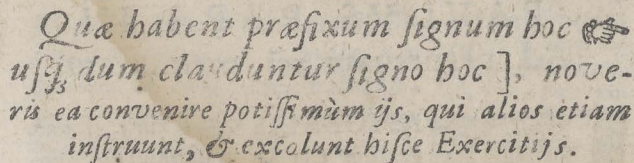 Quæ habent præfixum ſignum hoc ☞
uſq́ꝫ dum clauduntur ſigno hoc ], nove-
ris ea convenire potiſſimùm ijs, qui alios etiam
inſtruunt, & excolunt hiſce Exercitijs.